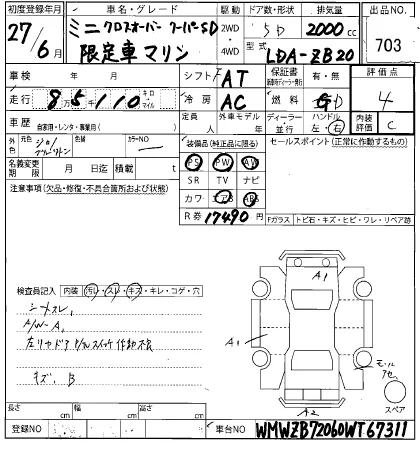 初度登録年月 車名・グレード 駆動 ドア数・形状 排気量 出品NO.
27/6月 ミニ クロスオーバー クーパーSD 2WD 5D 2000cc 703
限定車マリン 4WD 型式 LDA-ZB20
車検 年 月 シフト FAT 保証書 有・無 評価点
走行 8万5千110キロ マイル 冷房 AC 燃料 G D 4
車歴 自家用・レンタ・事業用( ) 定員 人 外車モデル ディーラー 並行 ハンドル 左・右 内装評価 C
外色 元色 色替 カラーNO 装備品(純正品に限る) セールスポイント(正常に作動するもの)
PS PW AW
名義変更期限 月 日迄 積載 t SR TV ナビ
注意事項(欠品・修復・不具合箇所および状態) カワ エアB ABS
R券 17490円 Fガラス トビ石・キズ・ヒビ・ワレ・リペア跡
A1
検査員記入 内装 汚レ・スレ・キズ・キレ・コゲ・穴
シートスレ、
A/W-A、 A1
キズ、B スペア
A2
長さ cm 幅 cm 高さ cm
登録NO 車台NO WMWZB72060WT67311